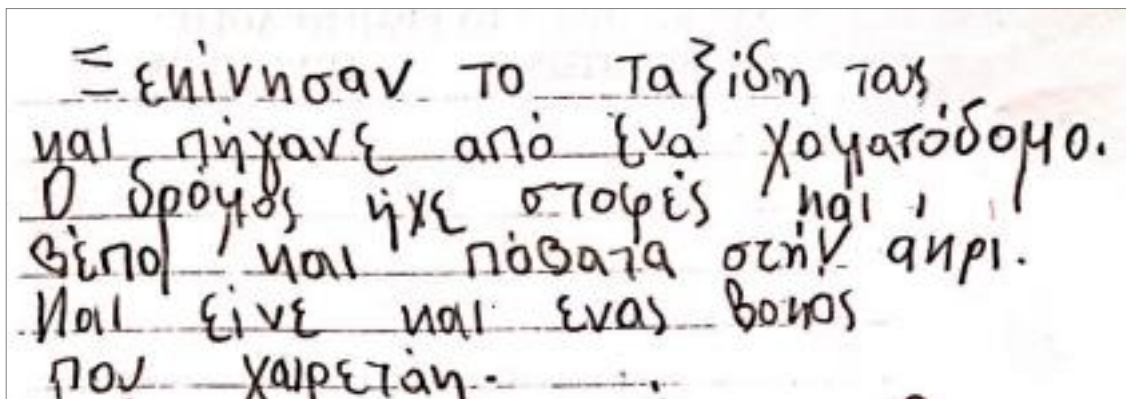 Ξεκίνησαν το ταξίδη τους
και πήγανε από ένα χοματόδομο.
Ο δρόμος ήχε στοφές και
βέπο και πόβατα στήν άκρι.
Και είνε και ενας βοκος
που χαιρετάη.